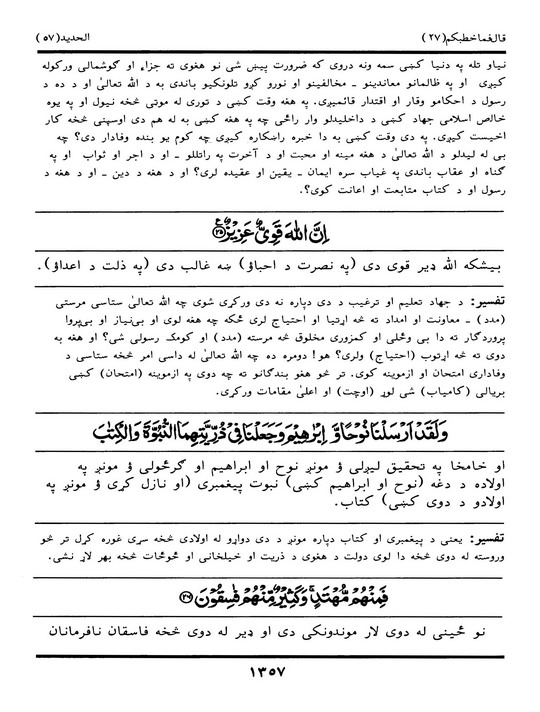 قال فما خطبکم (۲۷)
الحدید (۵۷)
نیاو تله په دنیا کښی سمه ونه دروی که ضرورت پیښ شی نو هغوی ته جزاء او گوشمالی ورکوله
کیږی او په ظالمانو معاندینو ـ مخالفینو او نورو کږو تلونکیو باندی به د الله تعالیٰ او د ده د
رسول د احکامو وقار او اقتدار قائمیږی. په هغه وقت کښی د توری له موتی څخه نیول او په یوه
خالص اسلامی جهاد کښی د داخلیدلو وار راځی چه په هغه کښی به له هم دی اوسپنی څخه کار
اخیست کیږی. په دی وقت کښی به دا خبره راښکاره کیږی چه کوم یو بنده وفادار دی؟ چه
بی له لیدلو د الله تعالیٰ د هغه مینه او محبت او د آخرت په راتللو ـ او د اجر او ثواب او په
گناه او عقاب باندی په غیاب سره ایمان ـ یقین او عقیده لری؟ او د هغه د دین ـ او د هغه د
رسول او د کتاب متابعت او اعانت کوی؟.
اِنَّ اللّٰهَ قَوِیٌّ عَزِیْزٌ ﴿۲۵﴾ ع
بیشکه الله ډیر قوی دی (په نصرت د احباؤ) ښه غالب دی (په ذلت د اعداؤ).
تفسیر: د جهاد تعلیم او ترغیب د دی دپاره نه دی ورکړی شوی چه الله تعالیٰ ستاسی مرستی
(مدد) ـ معاونت او امداد ته څه اړتیا او احتیاج لری ځکه چه هغه لوی او بی‌نیاز او بی‌پروا
پروردگار ته دا بی وځلی او کمزوری مخلوق څه مرسته (مدد) او کومک رسولی شی؟ او هغه به
دوی ته څه اړتوب (احتیاج) ولری؟ هو! دومره ده چه الله تعالیٰ له داسی امر څخه ستاسی د
وفاداری امتحان او ازموینه کوی. تر څو هغو بندگانو ته چه دوی په ازموینه (امتحان) کښی
بریالی (کامیاب) شی لوړ (اوچت) او اعلیٰ مقامات ورکړی.
وَلَقَدْ اَرْسَلْنَا نُوْحًا وَّ اِبْرٰهِیْمَ وَجَعَلْنَا فِیْ ذُرِّیَّتِهِمَا النُّبُوَّةَ وَالْکِتٰبَ
او خامخا په تحقیق لیږلی ؤ مونږ نوح او ابراهیم او گرځولی ؤ مونږ په
اولاده د دغه (نوح او ابراهیم کښی) نبوت پیغمبری (او نازل کړی ؤ مونږ په
اولادو د دوی کښی) کتاب.
تفسیر: یعنی د پیغمبری او کتاب دپاره مونږ د دی دواړو له اولادی څخه سړی غوره کړل تر څو
وروسته له دوی څخه دا لوی دولت د هغوی د ذریت او خیلخانی او ځوځات څخه بهر لاړ نشی.
فَمِنْهُمْ مُّهْتَدٍ ۚ وَکَثِیْرٌ مِّنْهُمْ فٰسِقُوْنَ ﴿۲۶﴾
نو ځینی له دوی لار موندونکی دی او ډیر له دوی څخه فاسقان نافرمانان
۱۳۵۷